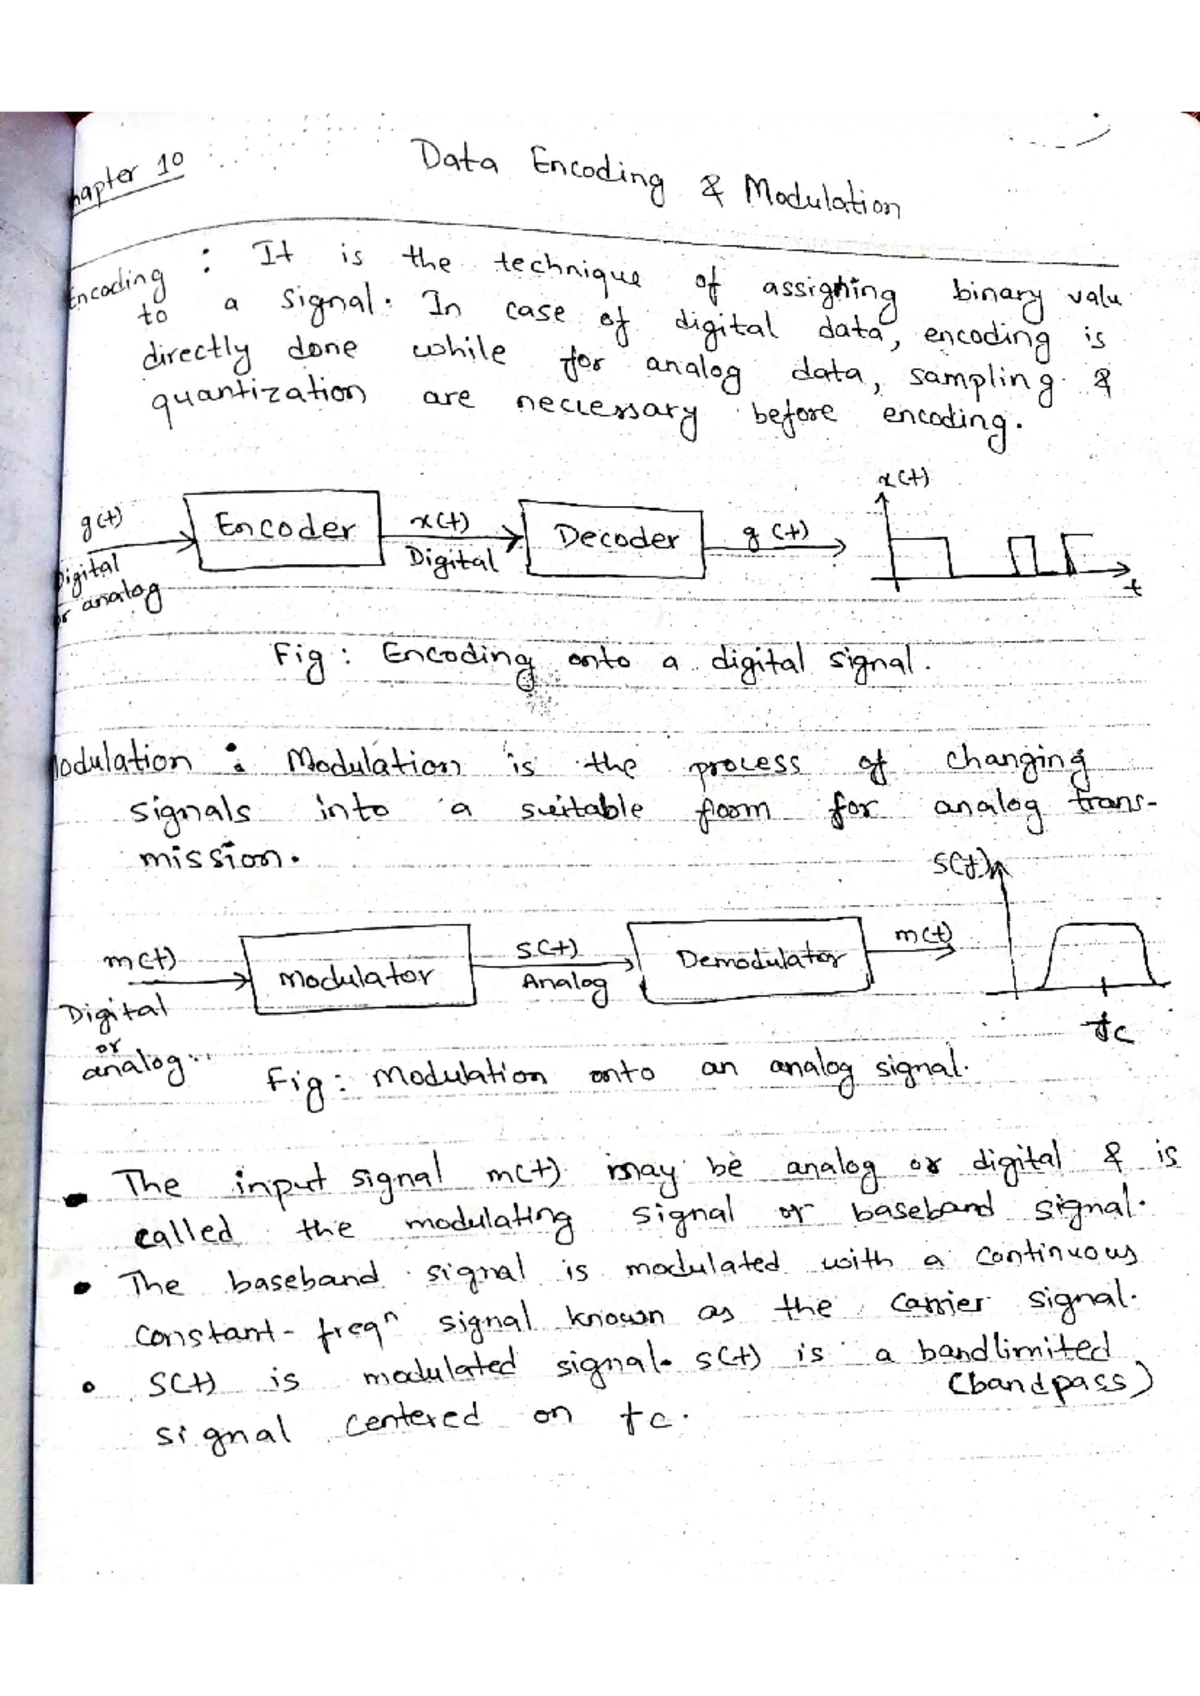 hapter 10
Data Encoding & Modulation
Encoding : It is the technique of assigning binary valu
to a signal. In case of digital data, encoding is
directly done while for analog data, sampling &
quantization are necessary before encoding.
g(t)
Digital
or analog
Encoder
x(t)
Digital
Decoder
g(t)
x(t)
t
Fig : Encoding onto a digital signal.
odulation : Modulation is the process of changing
signals into a suitable form for analog trans-
mission.
m(t)
Digital
or
analog
Modulator
s(t)
Analog
Demodulator
m(t)
S(t)
fc
Fig : Modulation onto an analog signal.
• The input signal m(t) may be analog or digital & is
called the modulating signal or baseband signal.
• The baseband signal is modulated with a continuous
constant-freqn signal known as the carrier signal.
• S(t) is modulated signal. s(t) is a bandlimited
(bandpass)
signal centered on fc.